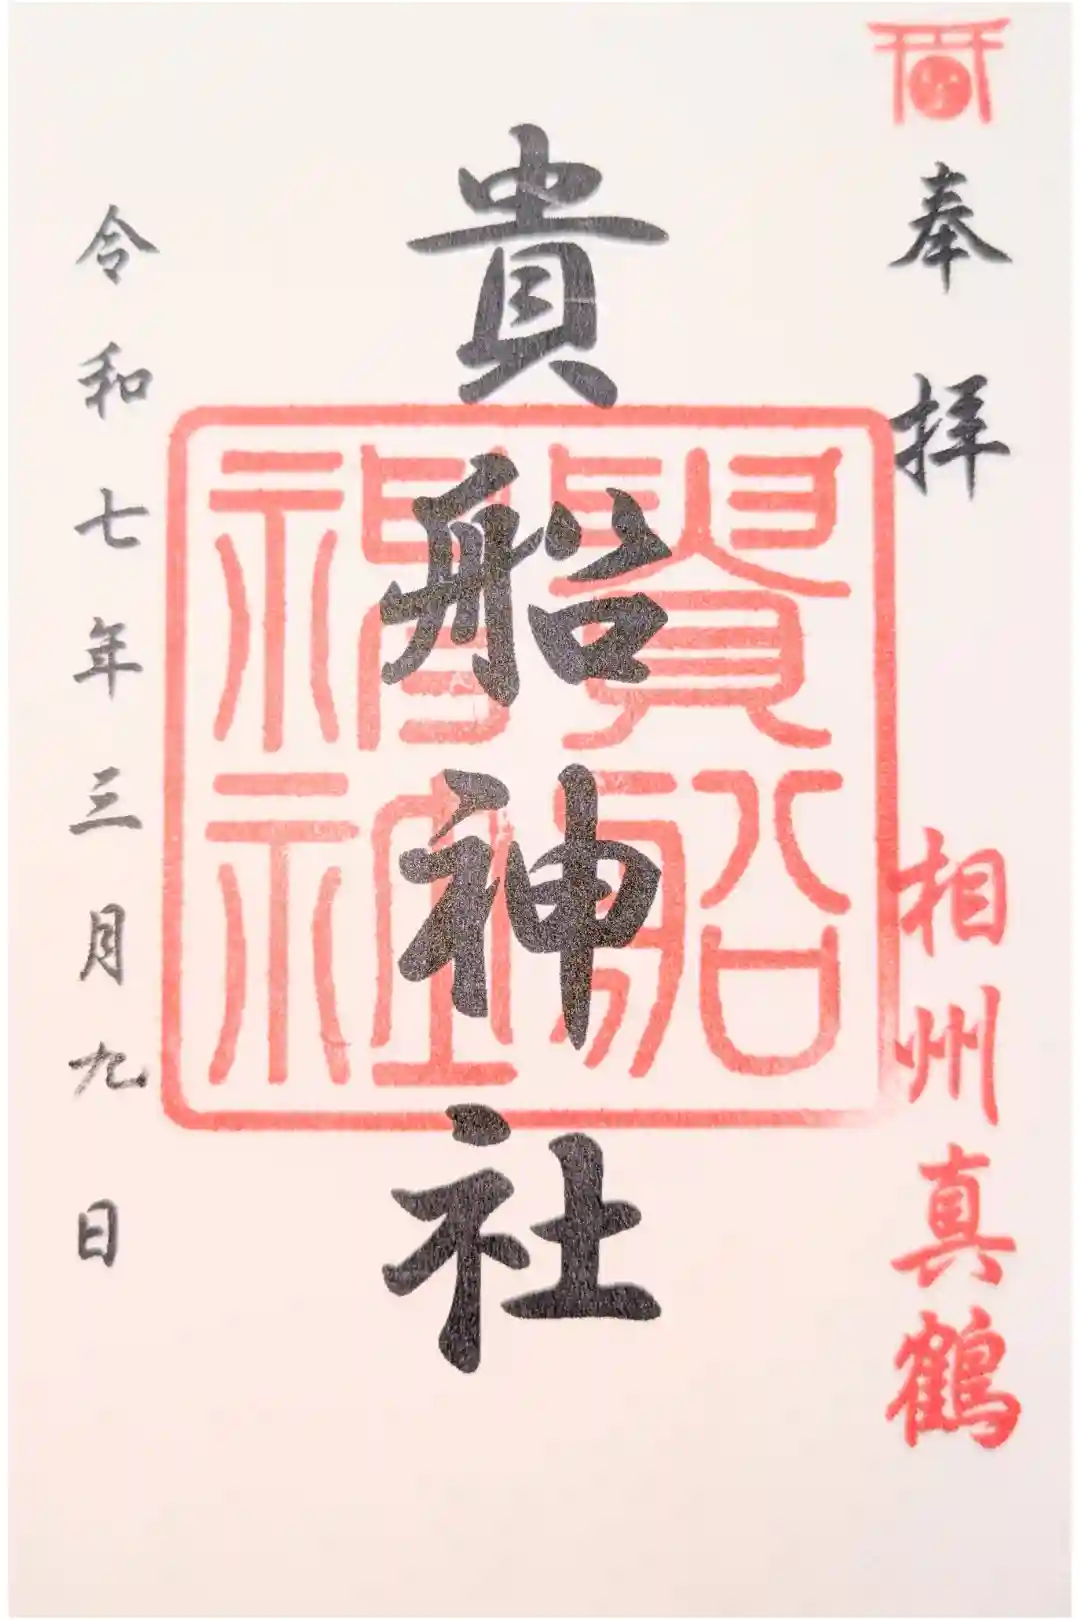 奉拝
相州真鶴
貴船神社
貴船
神社
令和七年三月九日